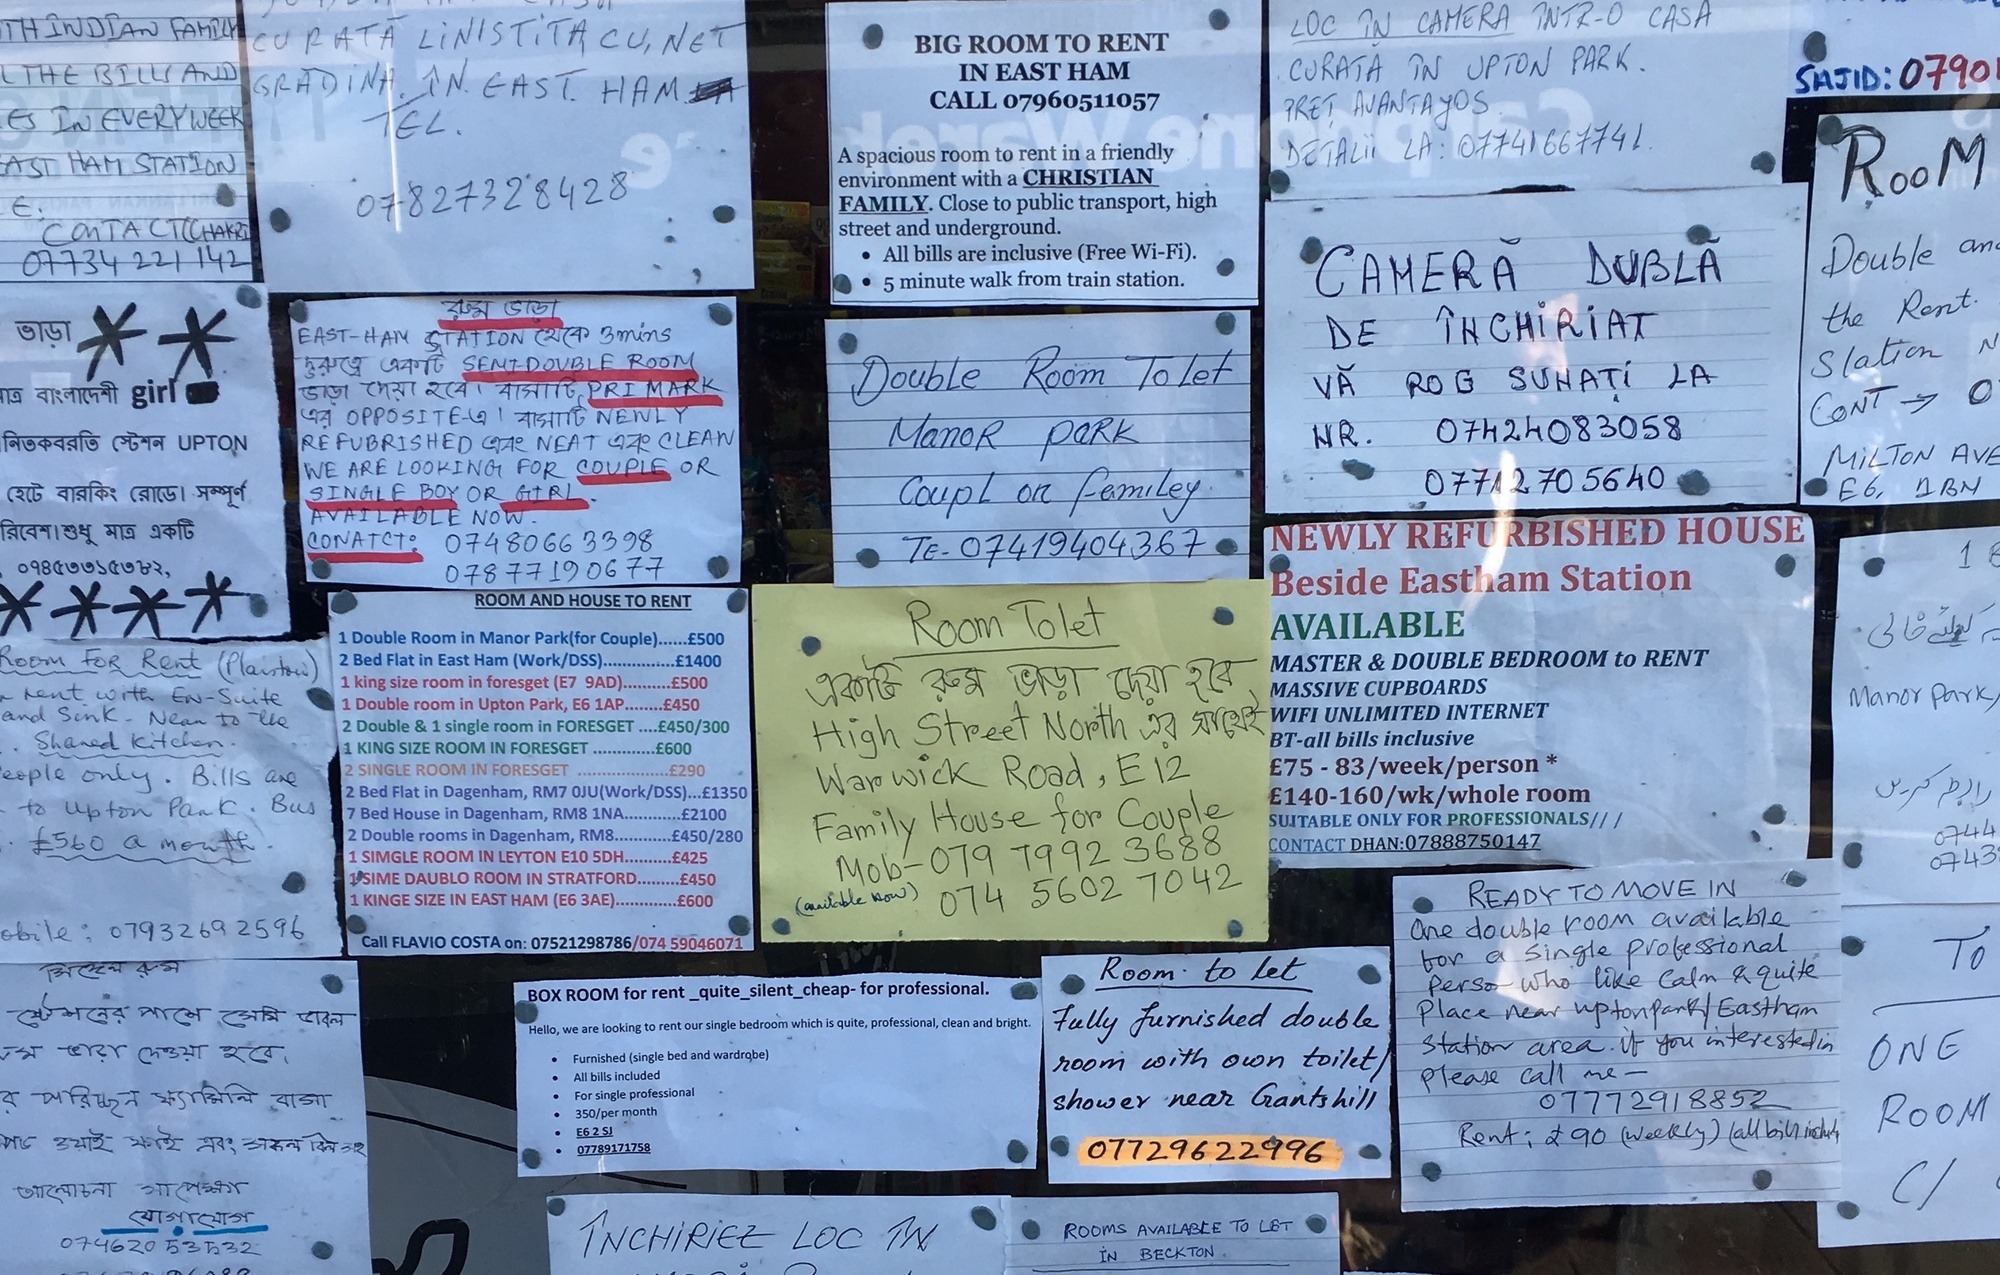 TH INDIAN FAMILY
THE BILLS AND
ES IN EVERY WEEK
EAST HAM STATION
E.
CONTACT (CHAKRI
07734 221 142
CURATĂ LINISTITA, CU, NET
GRADINA. ÎN EAST HAM
TEL.
07827328428
BIG ROOM TO RENT
IN EAST HAM
CALL 07960511057
A spacious room to rent in a friendly
environment with a CHRISTIAN
FAMILY. Close to public transport, high
street and underground.
• All bills are inclusive (Free Wi-Fi).
• 5 minute walk from train station.
LOC ÎN CAMERA ÎNTR-O CASA
CURATĂ ÎN UPTON PARK.
PREȚ AVANTAJOS
DETALII LA: 07741667741.
SAJID: 0790
ROOM
Double and
the Rent.
Station
CONT → 0
MILTON AVE
E6, 1BN
ভাড়া
মাত্র বাংলাদেশী girl
স্টেশন UPTON
হেটে বারকিং রোডে। সম্পূর্ণ
পরিবেশ। শুধু মাত্র একটি
০৭৪৫৩৩১৫৩৮২,
রুম ভাড়া
EAST-HAM STATION থেকে 3mins
দুরত্বে একটি SEMIDOUBLE ROOM
ভাড়া দেয়া হবে। বাসাটি PRIMARK
এর OPPOSITE-এ। বাসাটি NEWLY
REFUBRISHED এবং NEAT এবং CLEAN
WE ARE LOOKING FOR COUPLE OR
SINGLE BOY OR GIRL.
AVAILABLE NOW.
CONATCT: 07480663398
07877190677
Double Room To let
Manor park
Coupl or familey.
TE-07419404367
CAMERĂ DUBLĂ
DE ÎNCHIRIAT
VĂ ROG SUNAȚI LA
NR. 07424083058
07712705640
Room For Rent (Plaistow)
rent with En-Suite
and Sink. Near to the
. Shared kitchen.
eople only. Bills are
to Upton Park. Bus
. £560 a month.
obile: 07932692596
ROOM AND HOUSE TO RENT
1 Double Room in Manor Park(for Couple)......£500
2 Bed Flat in East Ham (Work/DSS)...............£1400
1 king size room in foresget (E7 9AD)..........£500
1 Double room in Upton Park, E6 1AP.......£450
2 Double & 1 single room in FORESGET ....£450/300
1 KING SIZE ROOM IN FORESGET ............£600
2 SINGLE ROOM IN FORESGET ...................£290
2 Bed Flat in Dagenham, RM7 0JU(Work/DSS)...£1350
7 Bed House in Dagenham, RM8 1NA...........£2100
2 Double rooms in Dagenham, RM8.........£450/280
1 SIMGLE ROOM IN LEYTON E10 5DH.......£425
1 SIME DAUBLO ROOM IN STRATFORD.........£450
1 KINGE SIZE IN EAST HAM (E6 3AE)............£600
Call FLAVIO COSTA on: 07521298786/074 59046071
Room To let
একটি রুম ভাড়া দেয়া হবে
High Street North এর সাথেই
Warwick Road, E12
Family House for Couple
Mob-079 7992 3688
(available now) 074 5602 7042
NEWLY REFURBISHED HOUSE
Beside Eastham Station
AVAILABLE
MASTER & DOUBLE BEDROOM to RENT
MASSIVE CUPBOARDS
WIFI UNLIMITED INTERNET
BT-all bills inclusive
£75 - 83/week/person *
£140-160/wk/whole room
SUITABLE ONLY FOR PROFESSIONALS///
CONTACT DHAN:07888750147
1
Manor park,
0744
0743
স্টেশনের পাশে সেমি ডাবল
রুম ভাড়া দেওয়া হবে,
যোগাযোগ
07462053532
BOX ROOM for rent _quite_silent_cheap- for professional.
Hello, we are looking to rent our single bedroom which is quite, professional, clean and bright.
• Furnished (single bed and wardrobe)
• All bills included
• For single professional
• 350/per month
• E6 2 SJ
• 07789171758
Room to let
Fully furnished double
room with own toilet/
shower near Gantshill
07729622996
READY TO MOVE IN
One double room available
for a single professional
person who like calm & quite
place near uptonpark/Eastham
station area. if you interested in
please call me —
07772918852
Rent: £90 (weekly) (all bills inclu
TO
ONE
ROOM
C/
ÎNCHIRIEZ LOC ÎN
ROOMS AVAILABLE TO LET
IN BECKTON.